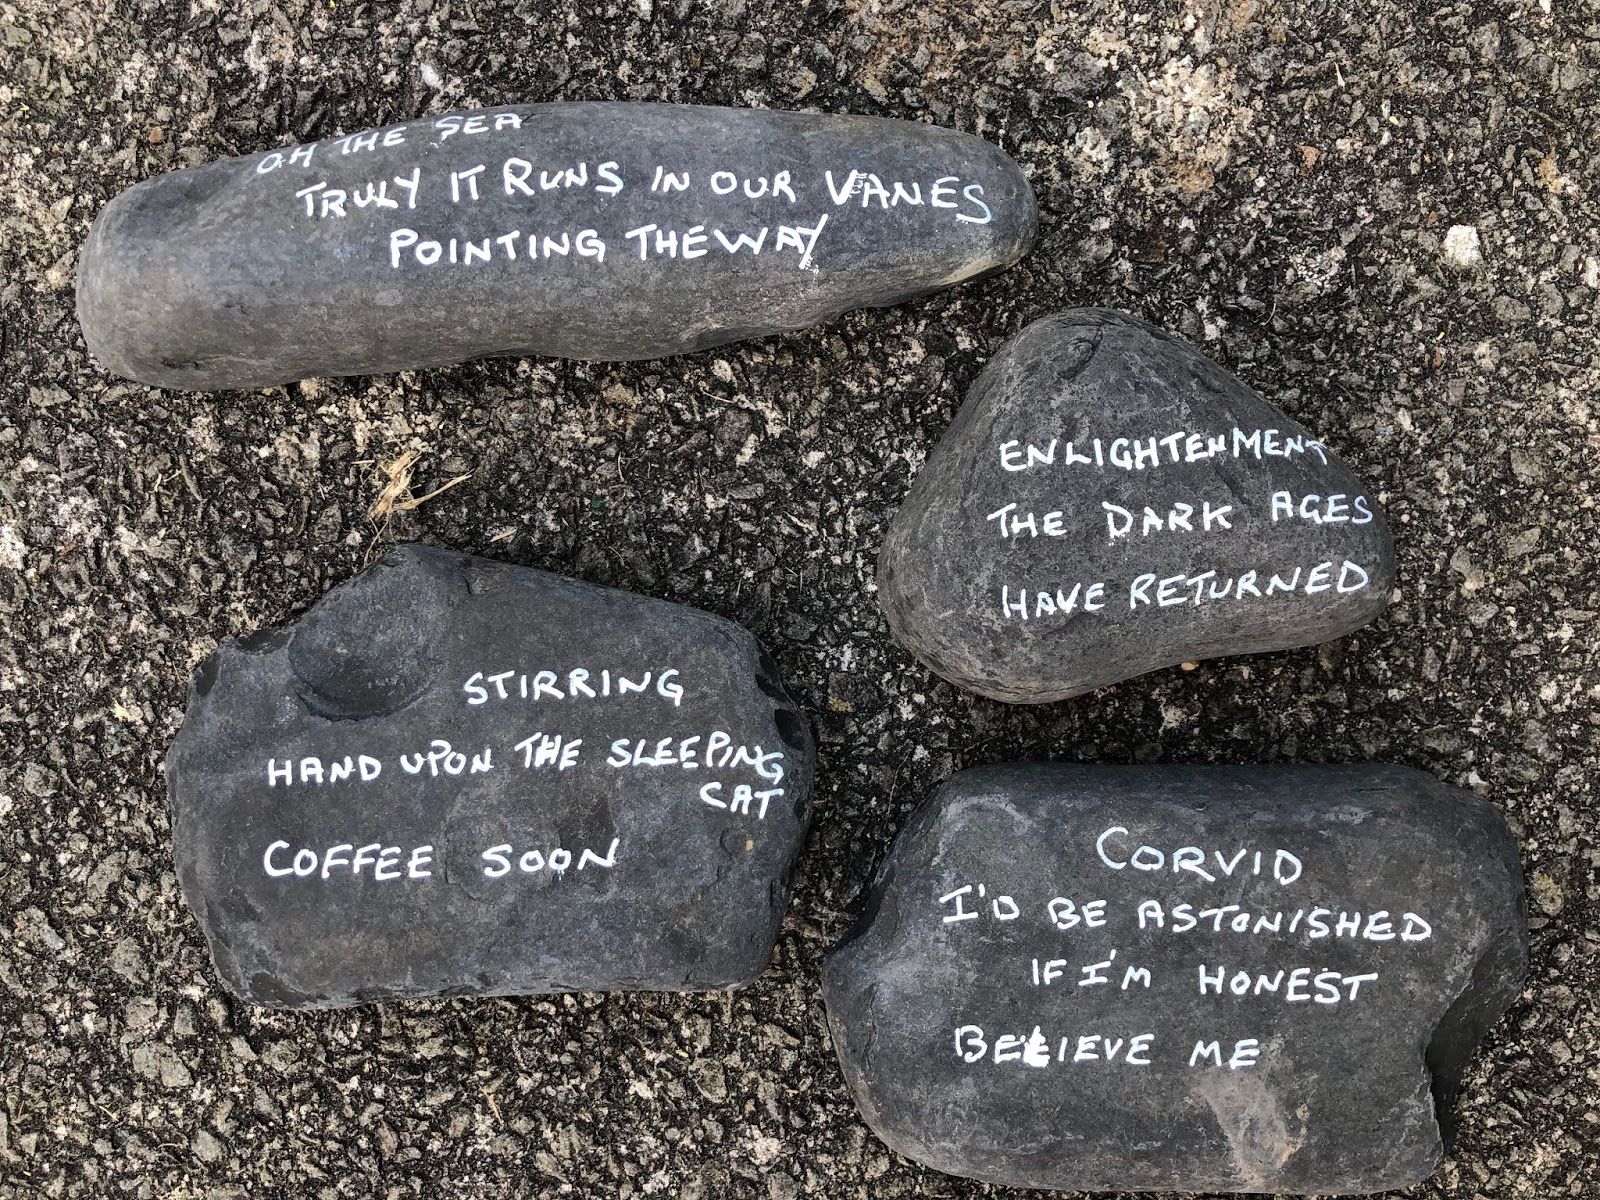 OH THE SEA
TRULY IT RUNS IN OUR VANES
POINTING THE WAY
ENLIGHTENMENT
THE DARK AGES
HAVE RETURNED
STIRRING
HAND UPON THE SLEEPING
CAT
COFFEE SOON
CORVID
I'D BE ASTONISHED
IF I'M HONEST
BELIEVE ME